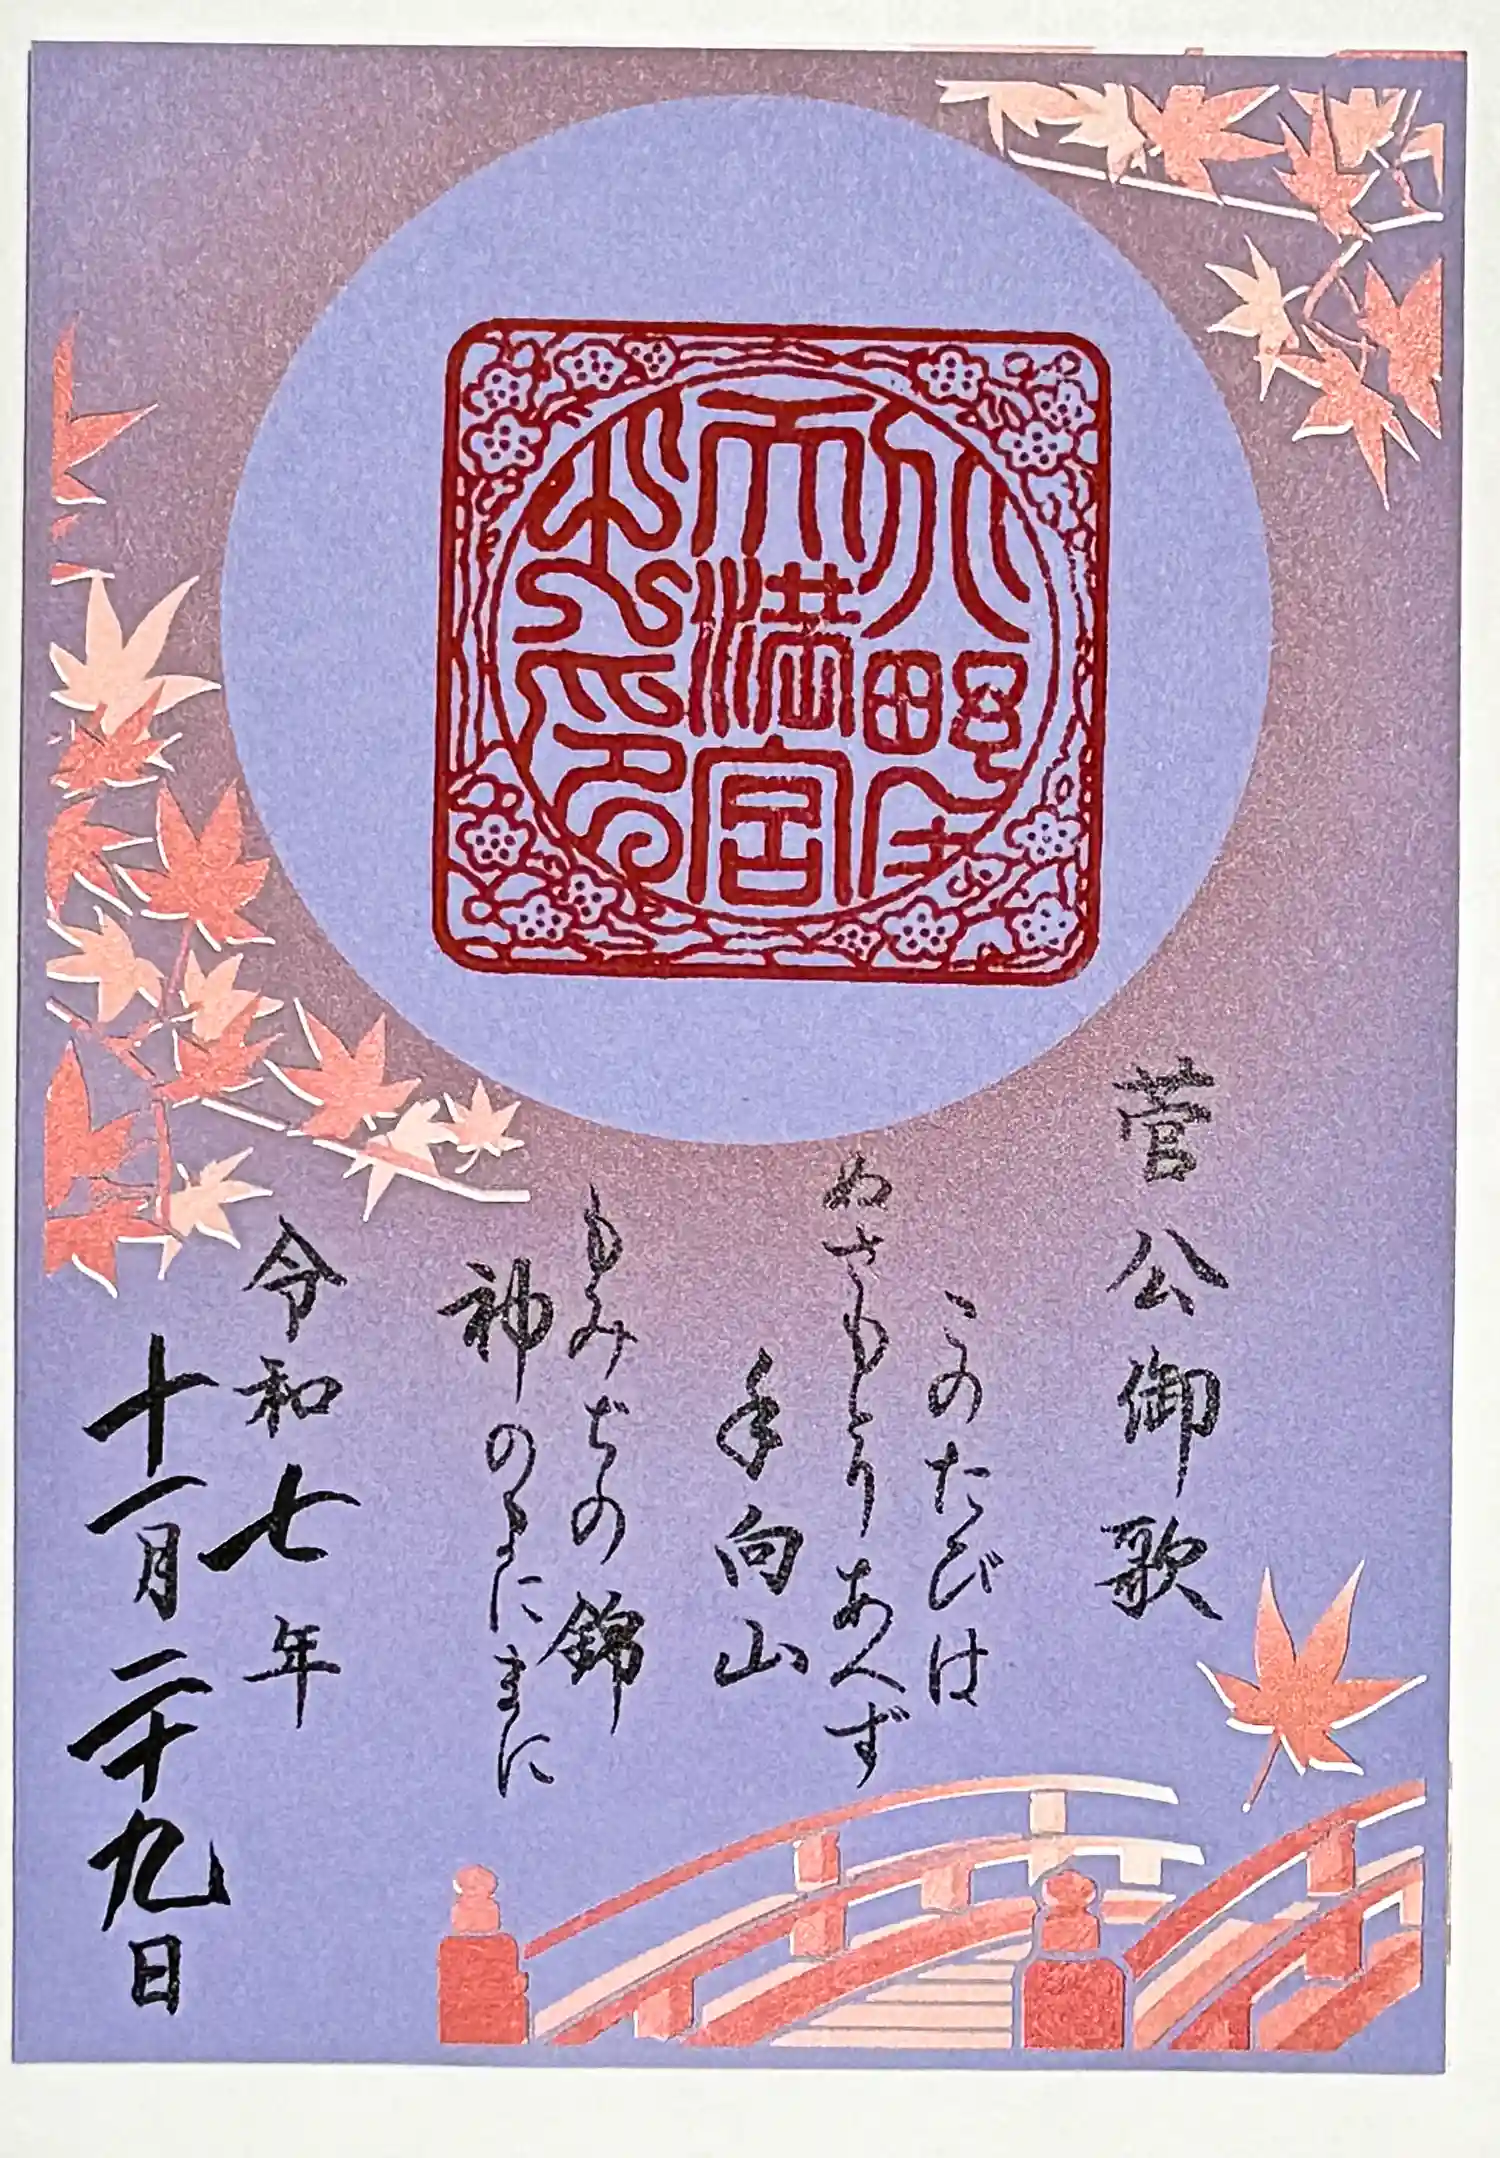 菅公御歌
このたびは
ぬさもとりあへず
手向山
もみぢの錦
神のまにまに
令和七年
十一月二十九日
天満宮